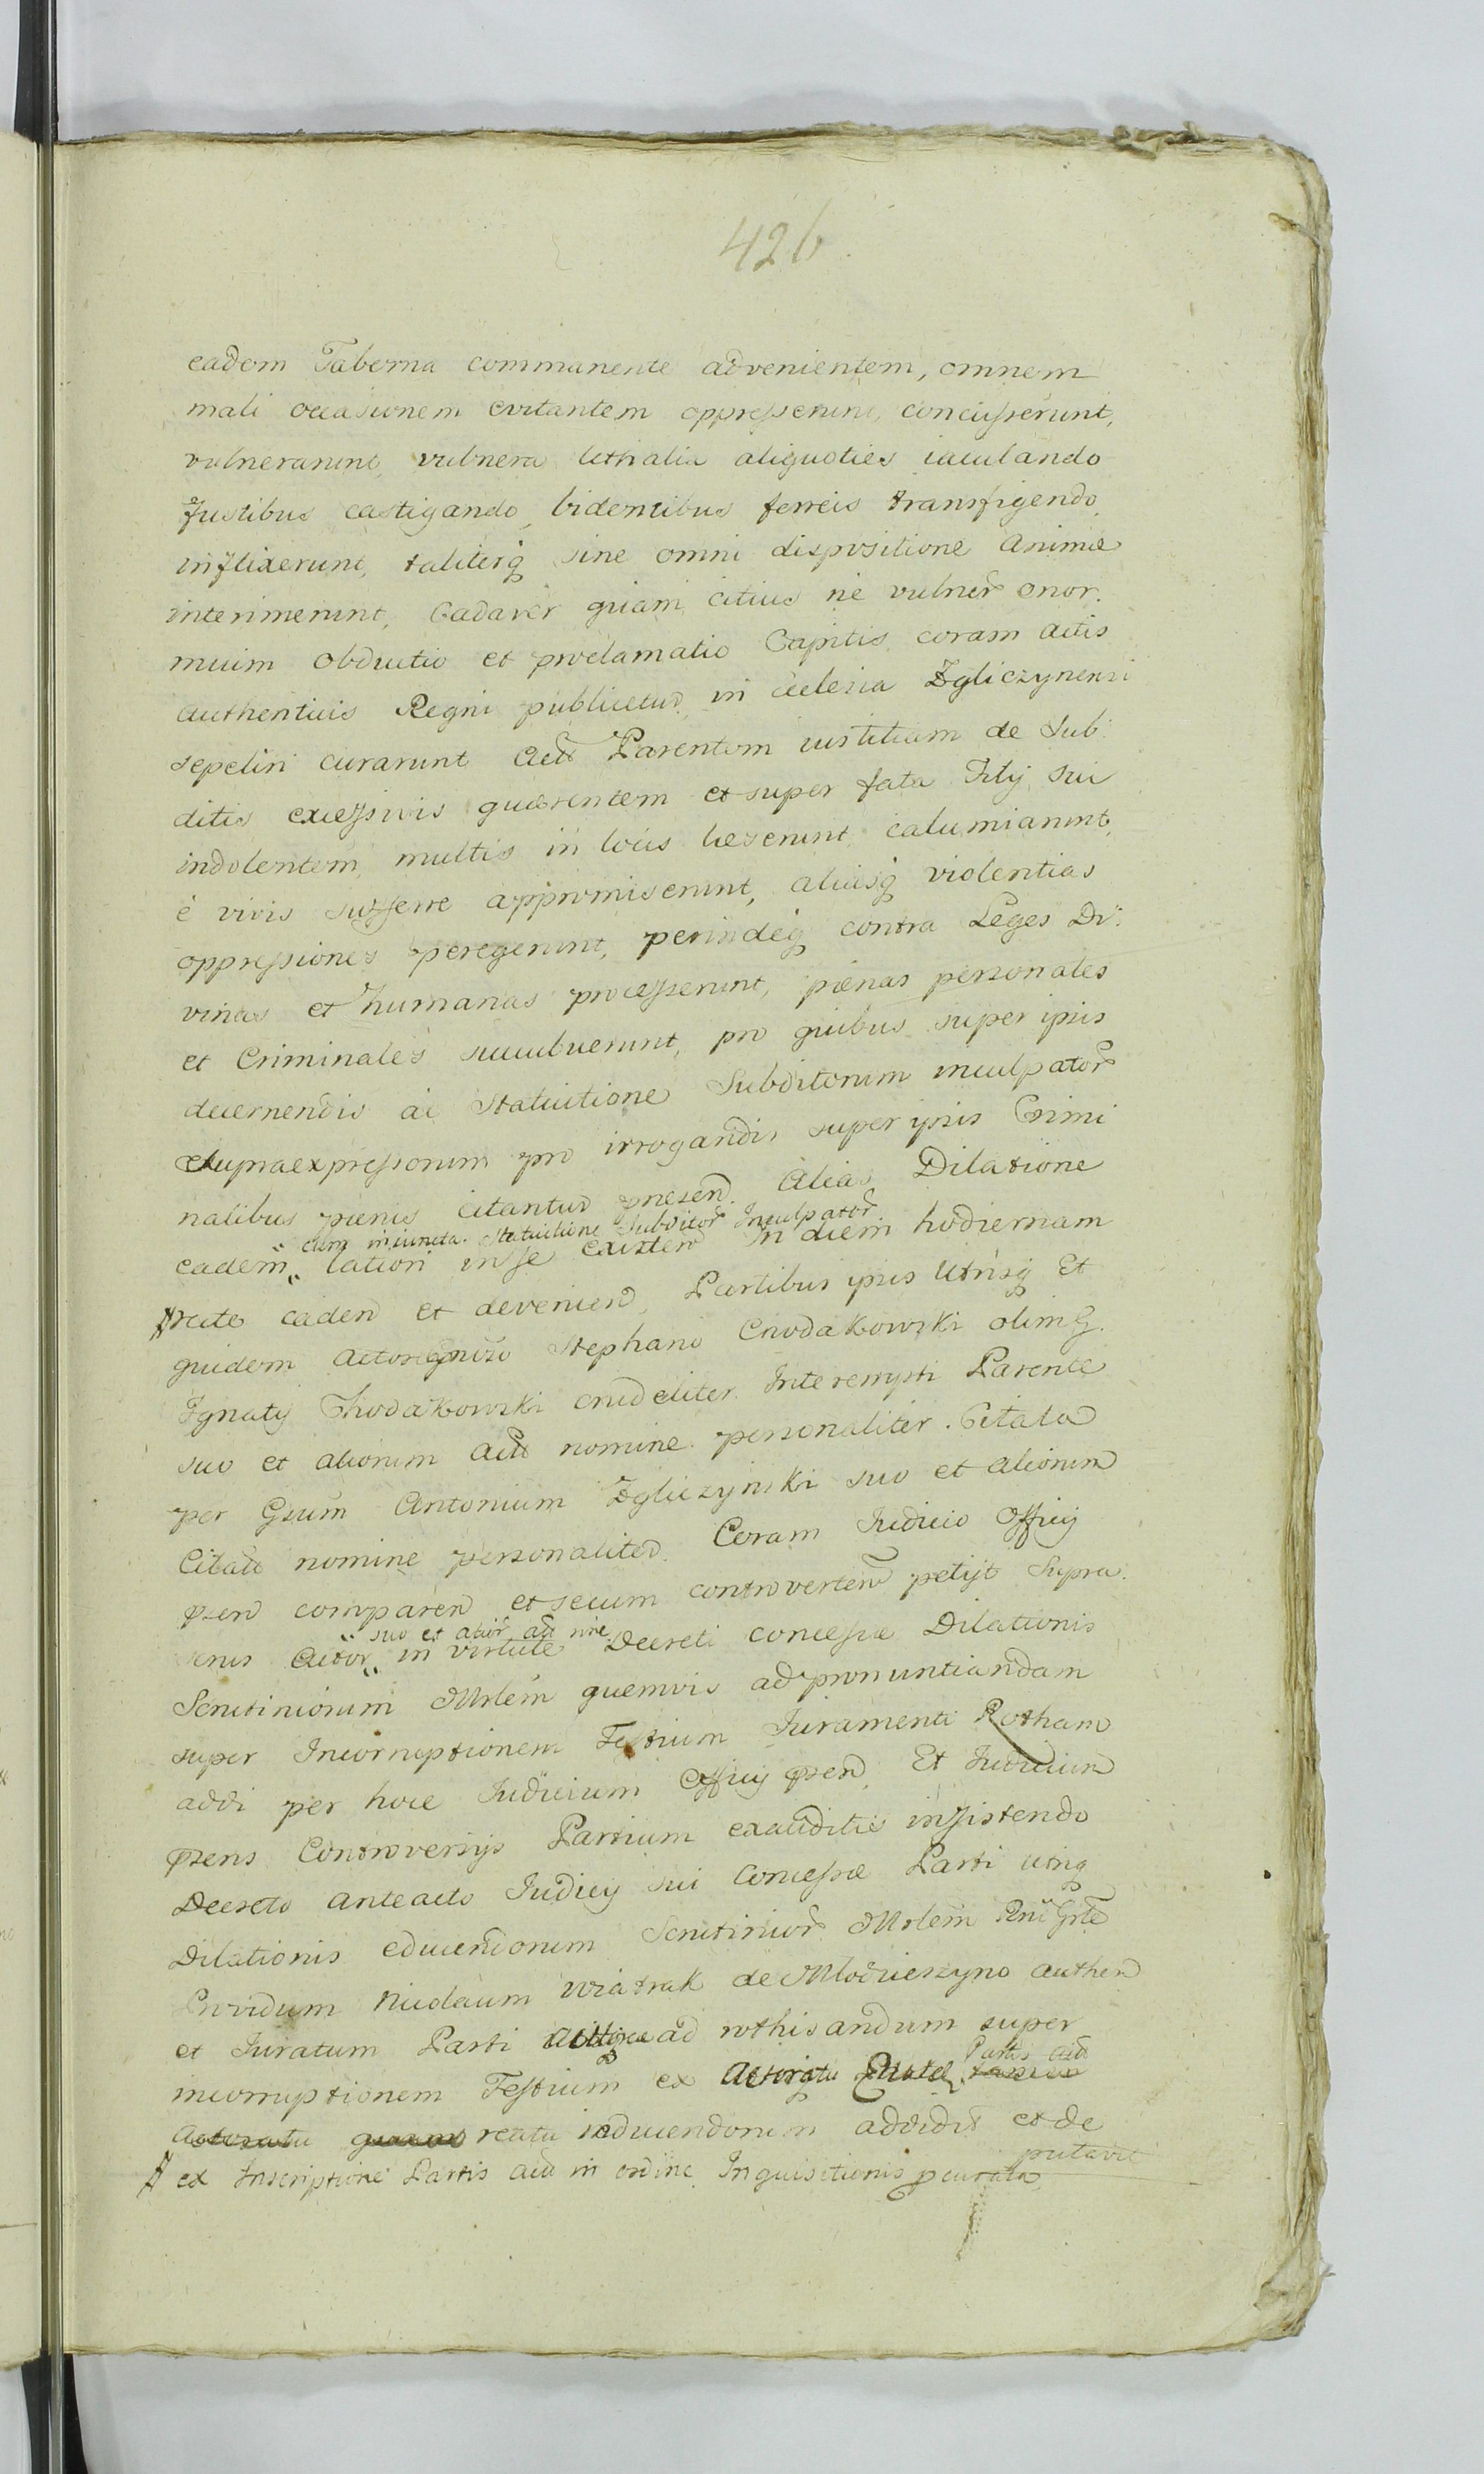 426.
eadem Taberna commanente advenientem, omnem
mali occasionem evitantem oppresserunt, concusserunt,
vulnerarunt, vulnera lethalia aliquoties iaculando
fustibus castigando, bidentibus ferreis transfigendo,
inflixerunt, taliterq sine omni dispositione Animæ
interimerunt, Cadaver quam citius ne vulner Enor.
mium Obductio et proclamatio Capitis coram actis
authenticis Regni publicetur, in Ecclesia Zgliczynensi
sepeliri curarunt Act Parentem iustitiam de Sub:
ditis excessivis quærentem et super fata Filij sui
indolentem, multis in locis læserunt, calumniarunt,
è vivis sufferre appromiserunt, aliasq violentias
oppressiones peregerunt, perindeq contra Leges Di:
vinas et humanas processerunt, pænas personales
et Criminales succubuerunt, pro quibus super ipsis
decernendis ac Statuitione Subditorum inculpator
Supraexpressorum pro irrogandis super ipsis Crimi
nalibus pænis citantur præsen. Alias Dilatione
cum iniuncta Statuitione Subditor Inculpator
eadem lationi in se existen in diem hodiernam
recte caden et devenien, Partibus ipsis Utrisq Et
quidem Actorea Gnroso Stephano Chodakowski olim G.
Ignatij Chodakowski crudeliter Interempti Parente
suo et aliorum Act nomine personaliter. Citata
per Gsum Antonium Zgliczynski suo et aliorum
Citat nomine personaliter. Coram Judicio Officij
psen comparen et secum controverten petijt Supra:
suo et alior act nne
scrus Actor in virtute Decreti concessæ Dilationis
Scrutiniorum Mrlem quemvis ad pronuntiandam
super Incorruptionem Testium Juramenti Rotham
addi per hoce Judicium Officij psen, Et Judicium
psens Controversijs Partium exauditis insistendo
Decreto anteacto Judicij sui Concessæ Parti utriq
Dilationis educendorum Scrutinior Mrlem Rni Grlem
Providum Nicolaum Wiatrak de Młodzieszyno authen
et Juratum Parti ad rothisandum super
incorruptionem Testium ex Actoratu Partis Act
Actoratu reatu inducendorum addidit et de
putavit
ex Inscriptione Partis act in ordine Inquisitionis peurata